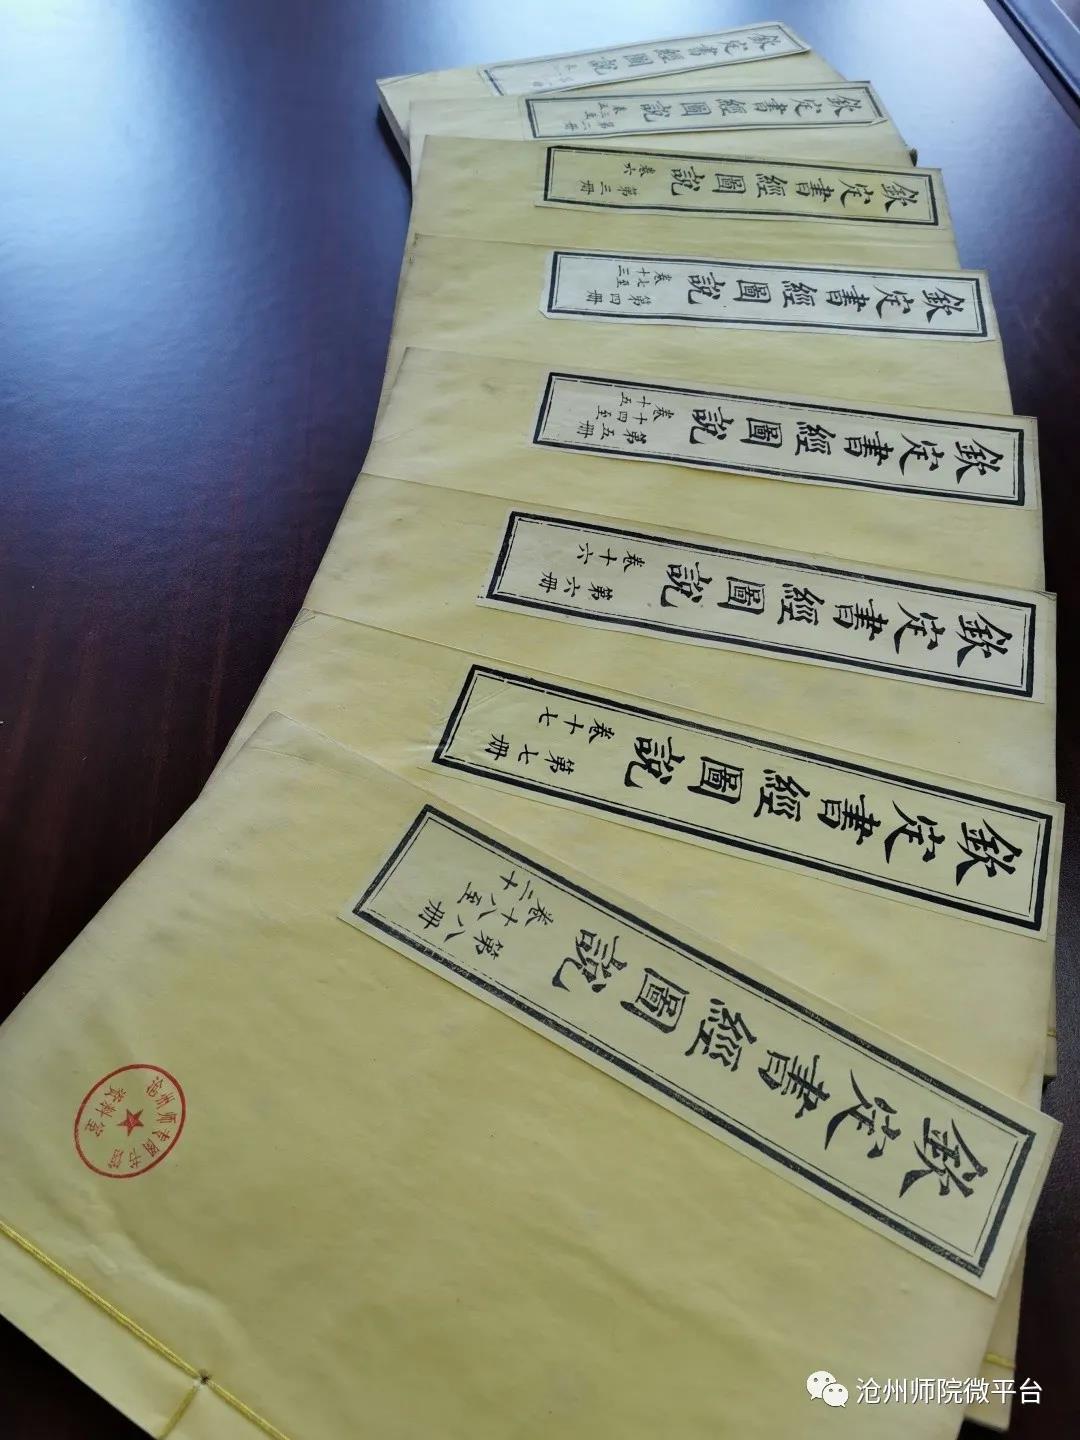 欽定書經圖說
欽定書經圖說
第二冊
卷三至
五
欽定書經圖說
第三冊
卷六
欽定書經圖說
第四冊
卷七至
十三
欽定書經圖說
第五冊
卷十四至
十五
欽定書經圖說
第六冊
卷十六
欽定書經圖說
第七冊
卷十七
欽定書經圖說
第八冊
卷十八至
二十
沧州师专图书馆
资料室
沧州师院微平台